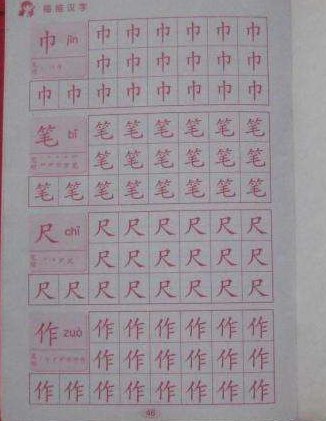 描描汉字
巾 jīn 巾 巾 巾 巾 巾 巾
巾 巾 巾 巾 巾 巾
巾 巾 巾 巾 巾 巾 巾 巾
笔 bǐ 笔 笔 笔 笔 笔 笔
笔 笔 笔 笔 笔 笔
笔 笔 笔 笔 笔 笔 笔 笔
尺 chǐ 尺 尺 尺 尺 尺 尺
尺 尺 尺 尺 尺 尺
尺 尺 尺 尺 尺 尺 尺 尺
作 zuò 作 作 作 作 作 作
作 作 作 作 作 作
作 作 作 作 作 作 作 作
46